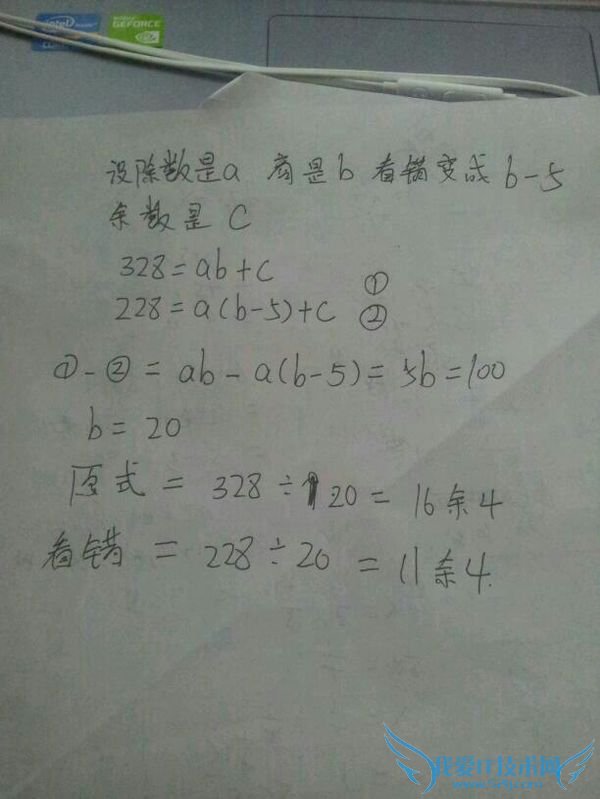 intel
GEFORCE
设除数是a 商是b 看错变成 b-5
余数是 C
328=ab+c ①
228=a(b-5)+c ②
①-②=ab-a(b-5)=5b=100
b=20
原式=328÷20=16余4
看错=228÷20=11余4
我爱IT技术网